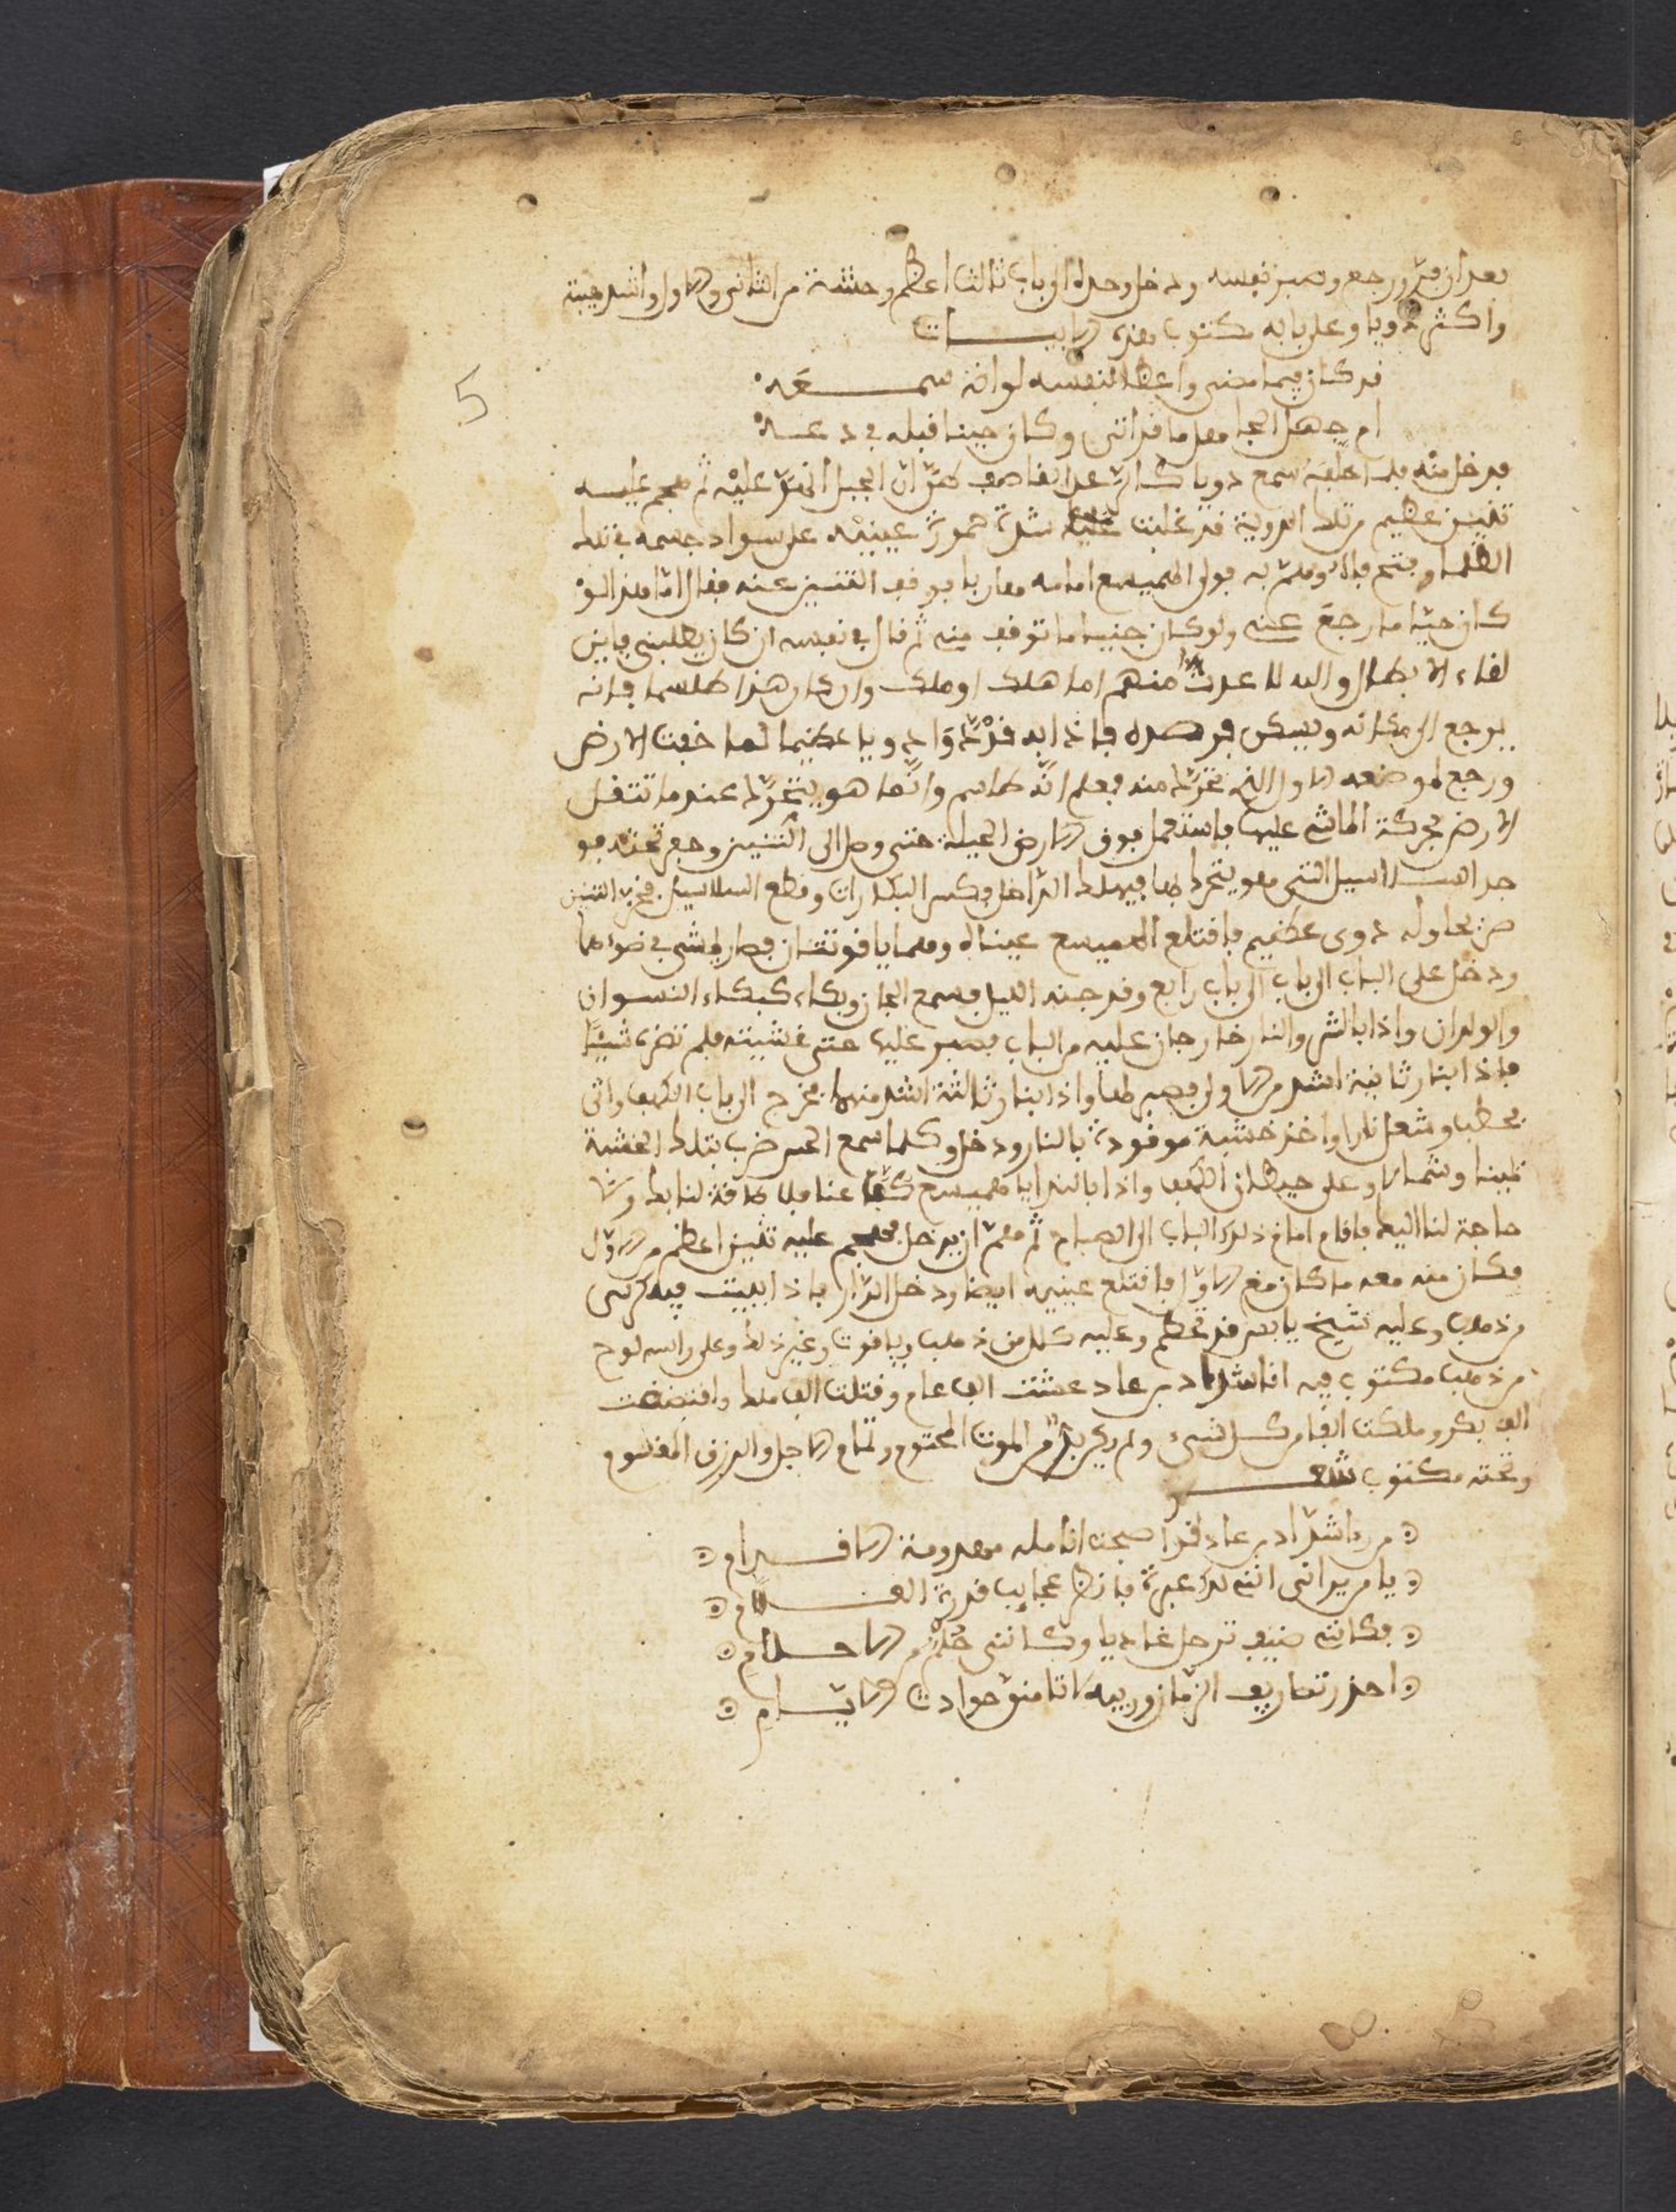 بعد ان فرّ ورجع وصبر نفسه ودخل وحده الى باب ثالث اعظم وحشة من الثاني والاول واشد هيبة
واكثر دويا وعلى بابه مكتوب هذه الابيات
قد كان فيما مضى واعظا لنفسه لو انه سمعه
ام جهل الجا معا ما قد اتى وكان حينا قبله في دعه
فدخل منه فلما سمع دويا كالرعد القاصف ان الجبل انخرّ عليه ثم هجم عليه
تنين عظيم من تلك الدوية قد غلبت عليه شدة حمرة عينيه على سواد جسمه في تلك
الظلما وفتح فاه وهمّ به فولى الهميسع امامه هاربا فوقف التنين عنه فقال اما هذا لو
كان حيّا ما رجع عنه ولو كان جنيا ما توقف منه ثم قال في نفسه ان كان يطلبني فاين
لقاء الابطال والله لا عدت منهم اما هلك او ملك وان كان هذا طلسما فانه
يرجع الى مكانه ويسكن فرصده فاذا به قد تحرّك وا دويا عظيما لما خفت الارض
ورجع لموضعه الاول الذي تحرّك منه فعلم انّه طلسم وانّما هو يتحرّك عندما تثقل
الارض بحركة الماشي عليها فاستعمل فوق الارض الحيلة حتى وصل الى التنين وحفر تحته فو
جد السلاسيل التي هو يتحرك بها فيهلك الداخل فكسر البكرات وقطع السلاسيل فخر التنين
من بحاوله دوى عظيم فاقتلع الهميسع عيناه وهما ياقوتتان فصار يمشي في ضوءهما
ودخل على الباب الى باب الى باب رابع وقد جنه الليل فسمع الجان وبكاء كبكاء النسوان
والولدان واذا بالشر والنار خارجان عليه من الباب فصبر عليها حتى غشيته فلم تضره شيئا
فاذا بنار ثانية اشد من الاولى فصبر لها واذا بنار ثالثة اشد منهما فخرج الى باب الكهف واتى
بحطب وشعل نارا واخذ خشبة موقودة بالنار ودخل وكلما سمع الحس ضرب بتلك الخشبة
يمينا وشمالا وعلى حيطان الكهف واذا بالندا يا هميسع كفّها عنا فلا طاقة لنا بك ولا
حاجة لنا اليه فاقام امام ذلك الباب الى الصباح ثم همّ ان يدخل فهجم عليه تنين اعظم من الاوّل
فكان منه معه ما كان مع الاوّل فاقتلع عينيه ايضا ودخل الدّار فاذا ببيت فيه كرسي
من ذهب وعليه شيخ يابس قد تحطم وعليه حلل من ذهب وياقوت وغير ذلك وعلى راسه لوح
من ذهب مكتوب فيه انا شداد بن عاد عشت الف عام وقتلت الف ملك وافتضضت
الف بكر وملكت الفا من كل شيء ولم يكن بدّ من الموت المحتوم وتمام الاجل والرزق المقسوم
وتحته مكتوب شعر
من ذا شدّاد بن عاد قد اصبحت انامله معدومة الاقدام
يا من يراني انني لك عبرة فانظر عجايب قدرة العلام
فكانني ضيف ترحل غاديا وكانني حُلُمٌ من الاحلام
احذر تصاريف الزّمان وريبه لا تامننّ حوادث الايّام
5